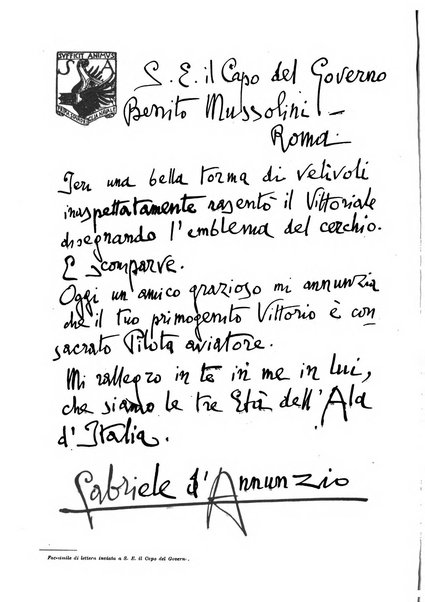 SVFFICIT ANIMVS
S A
S. E. il Capo del Governo
Benito Mussolini -
Roma.
Ieri una bella torma di velivoli
inaspettatamente rasentò il Vittoriale
disegnando l'emblema del cerchio.
E scomparve.
Oggi un amico grazioso mi annunzia
che il tuo primogenito Vittorio è con-
sacrato Pilota aviatore.
Mi rallegro in te in me in lui,
che siamo le tre Età dell'Ala
d'Italia.
Gabriele d'Annunzio
Facsimile di lettera inviata a S. E. il Capo del Governo.